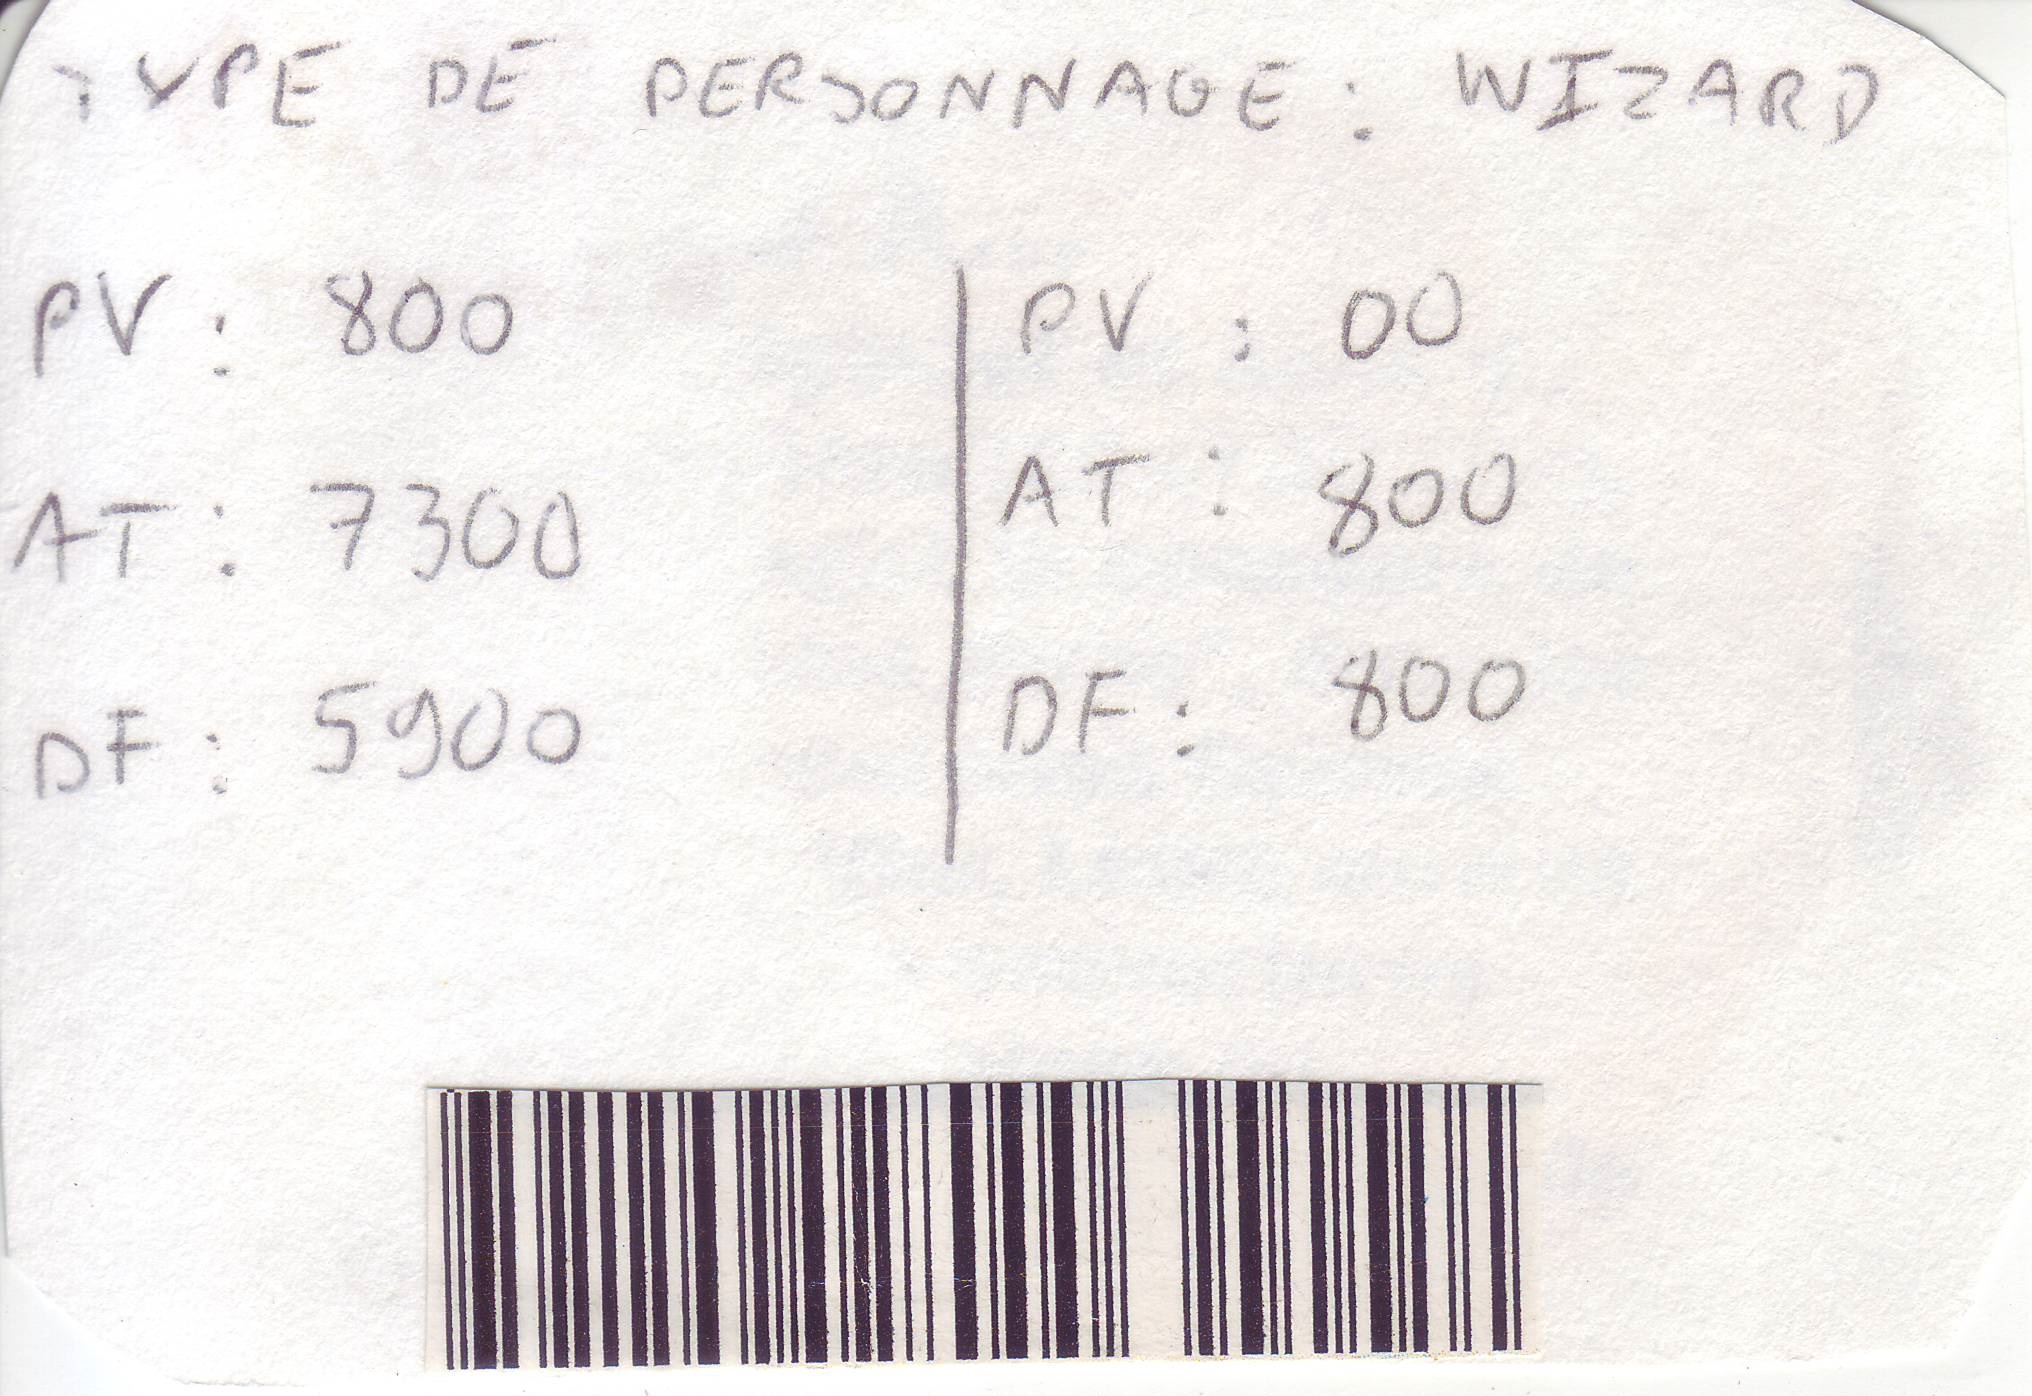 TYPE DE PERSONNAGE: WIZARD
PV: 800
AT: 7300
DF: 5900
PV: 00
AT: 800
DF: 800